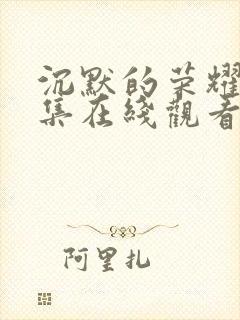 沉默的荣耀
集在綫觀看
阿里扎